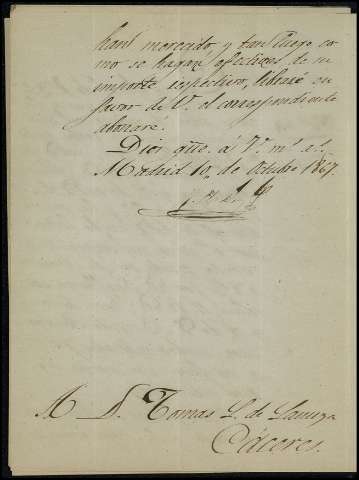 han merecido, y tan luego co-
mo se hagan efectivas de su
importe respectivo, libraré su
favor de V. el correspondiente
abonaré.
Dios gue. á V. m. a.
Madrid 10 de Octubre 1867.
D. Tomas L. de
Cáceres.